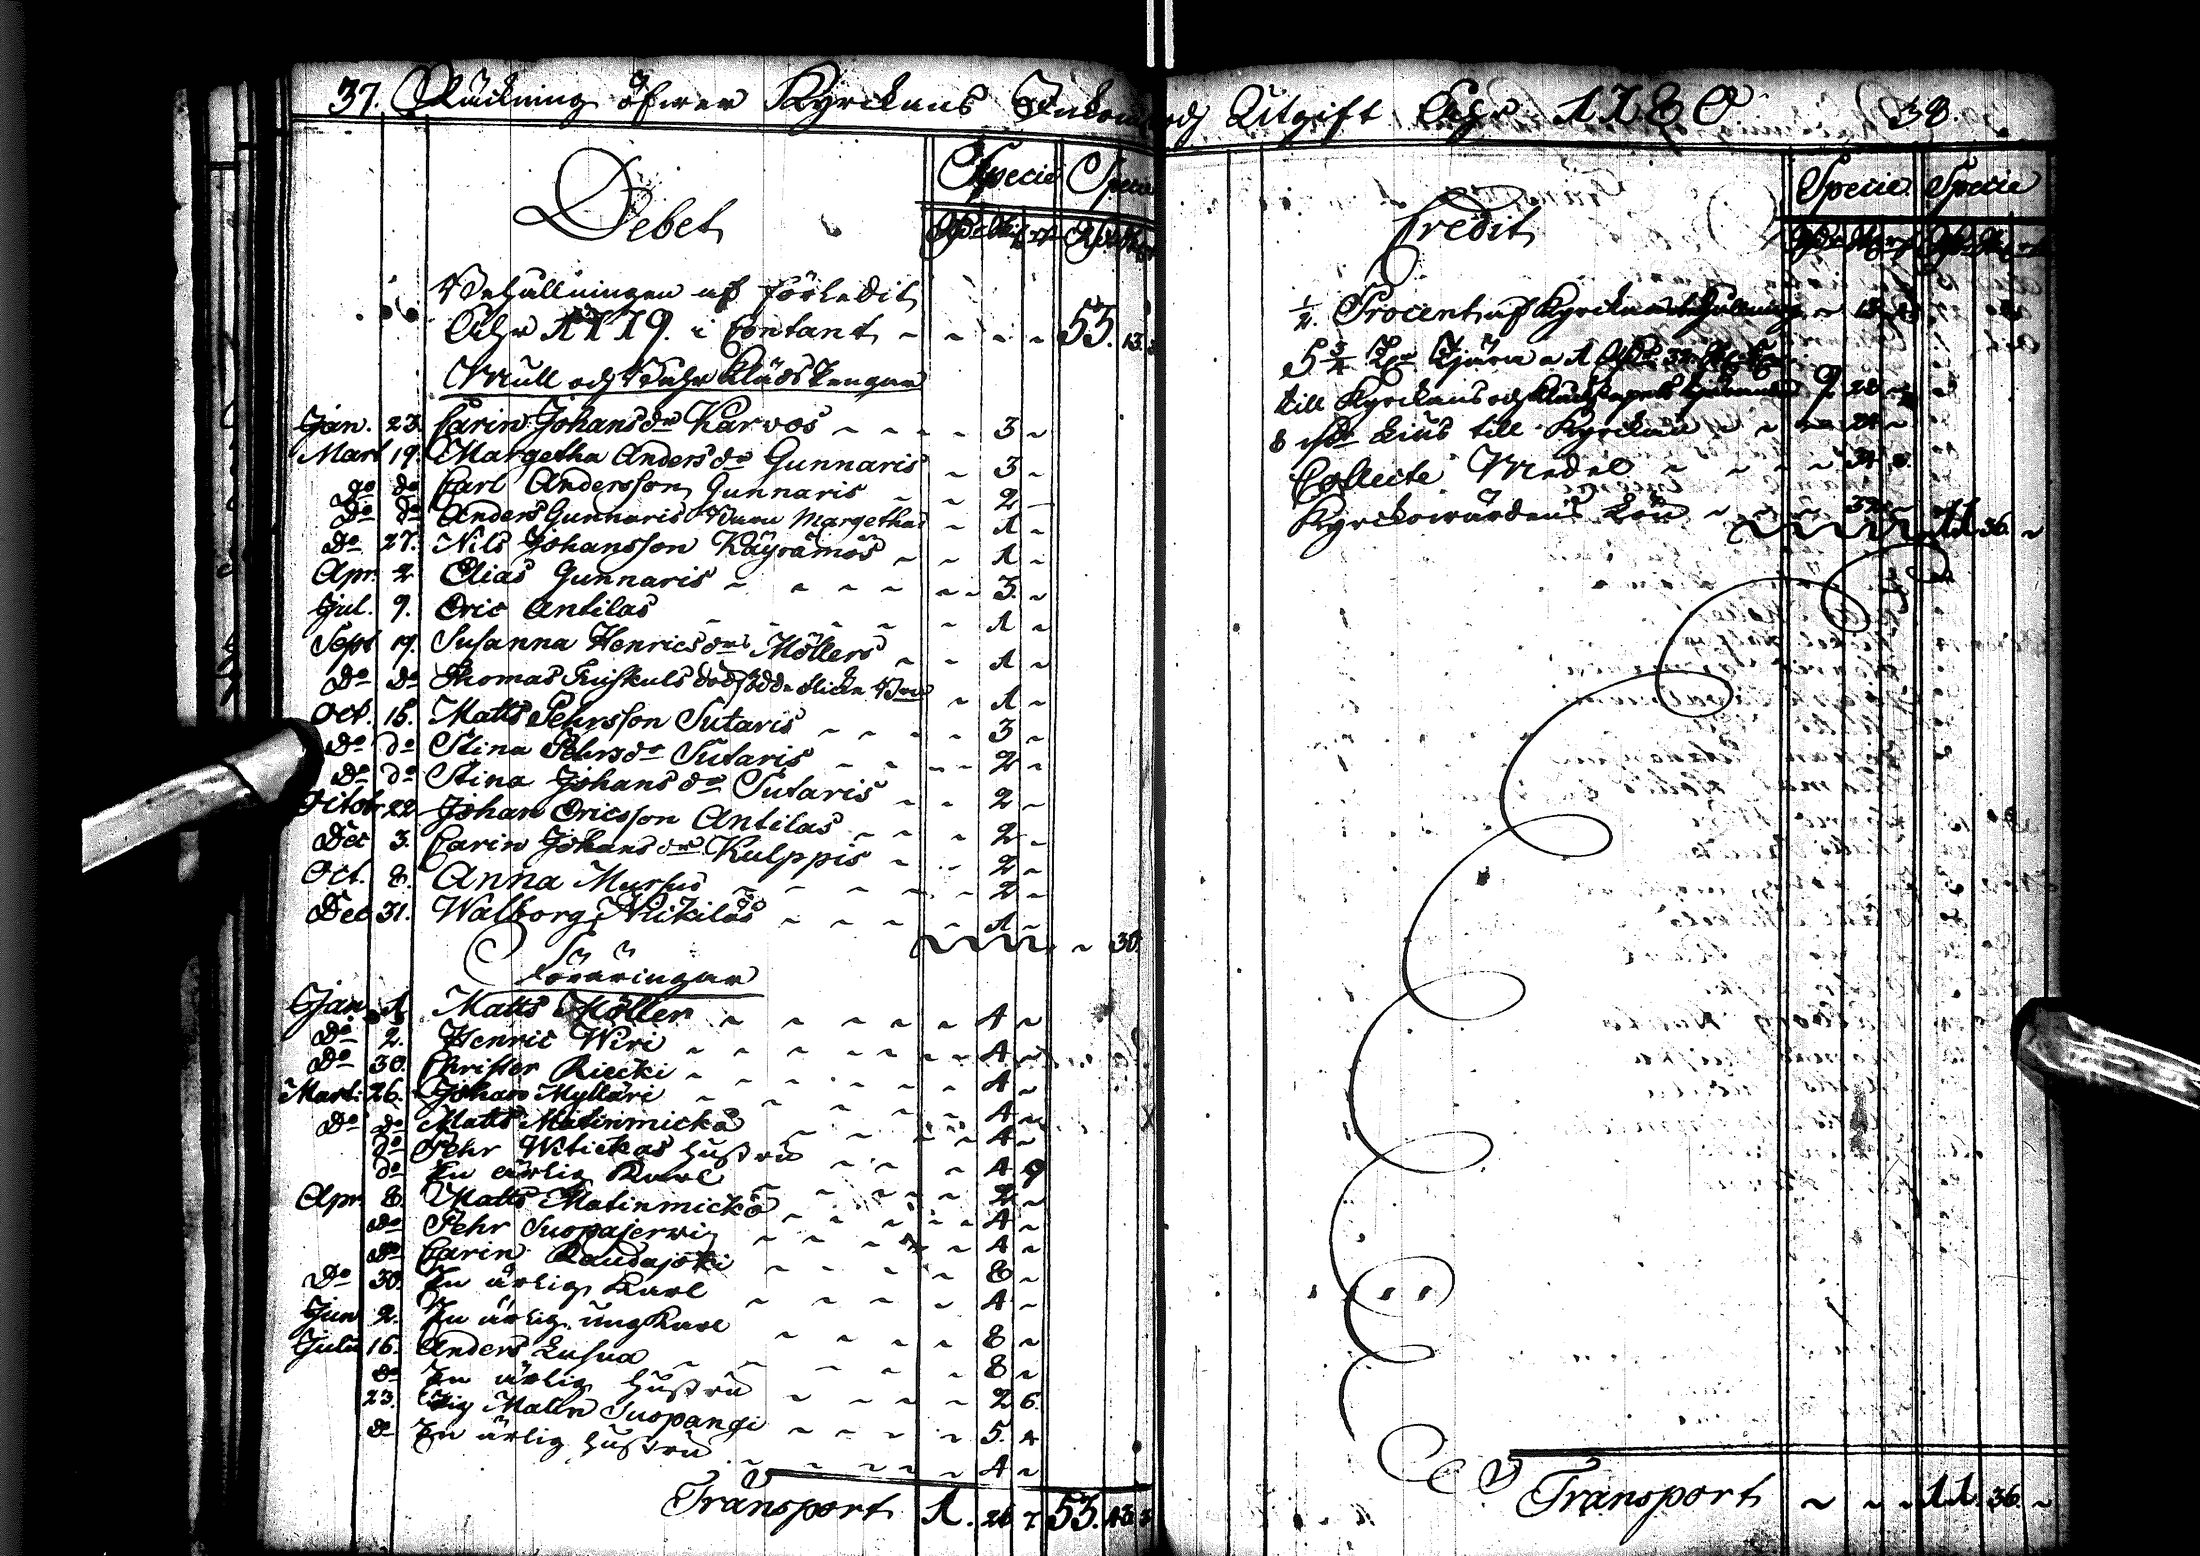 37. Räckning öfwer Kyrckans Inkom
Debet
Specie Specie
Behållningen af förledit
Åhr 1779. i Contant ~ ~ ~ ~ 53. 13.
Mull och Bahr Kläds Pengar
Jan. 23. Carin Johans dr Karvos ~ ~ ~ ~ 3 ~
Mart 19. Margetha Anders dr Gunnaris ~ 3 ~
do do Carl Andersson Gunnaris ~ ~ 2 ~
Do do Anders Gunnaris Barn Margetha ~ 1 ~
Do 27. Nils Johansson Käyrämös ~ ~ 1 ~
Apr. 2 Elias Gunnaris ~ ~ ~ ~ ~ 3. ~
Jul. 9. Eric Antilas ~ ~ ~ ~ ~ 1 ~
Sept 17. Susanna Henrics dr Möllers ~ ~ 1 ~
Do do Thomas dödfödda flicka ~ 1 ~
Oct. 15. Matts Pehrsson Sutaris ~ ~ ~ ~ 3 ~
Do do Stina Pehrs dr Sutaris ~ ~ ~ ~ 2 ~
Do do Stina Johans dr Sutaris ~ ~ 2 ~
Octobr 22 Johan Ericsson Antilas ~ ~ ~ 2 ~
Dec 3. Carin Johans dr Kulppis ~ ~ 2 ~
Oct. 8. Anna Mursus ~ ~ ~ ~ ~ 2 ~
Dec 31. Walborg Nikilas ~ ~ ~ ~ 1 ~
~ 30.
Föräringar
Jan. 1. Matts Möller ~ ~ ~ ~ ~ 4 ~
Do 2. Henric Wiri ~ ~ ~ ~ ~ 4 ~
Do 30. Christer Riecki ~ ~ ~ ~ ~ 4 ~
Mart: 26. Johan Mylläri ~ ~ ~ ~ ~ 4 ~
Do do Matts Matinmickä ~ ~ ~ ~ 4 ~
do Pehr Witickas hustru ~ ~ ~ 4 9
do En ärlig Karl ~ ~ ~ ~ 2 ~
Apr 8. Matts Matinmickä ~ ~ ~ ~ 4 ~
do Pehr Suopajerwi ~ ~ ~ ~ 4 ~
do Carin Raudajoki ~ ~ ~ ~ 8 ~
Do 30. En ärlig Karl ~ ~ ~ ~ 4 ~
Jun 2. En ärlig ung Karl ~ ~ ~ ~ 8 ~
Julii 16. Anders Lusua ~ ~ ~ ~ 8 ~
do En ärlig hustru ~ ~ ~ ~ 2 6.
23. Pig Malin Suopangi ~ ~ ~ ~ 5. 4
do En ärlig hustru ~ ~ ~ ~ 4 ~
Transport 1. 26 7 53. 43.
och Utgift Åhr 1780. 38.
Credit
Specie Specie
1/2. Procent af Kyrckans
5 3/4 Tjära a 1
till Kyrckans och 9 28
8 Lius till Kyrckan ~ ~ ~ 24 ~
Collecte Medel ~ ~ ~ ~
Kyrckowärdens Lön ~ ~ ~ 32 ~ 11. 36. ~
Transport ~ ~ ~ 11. 36. ~